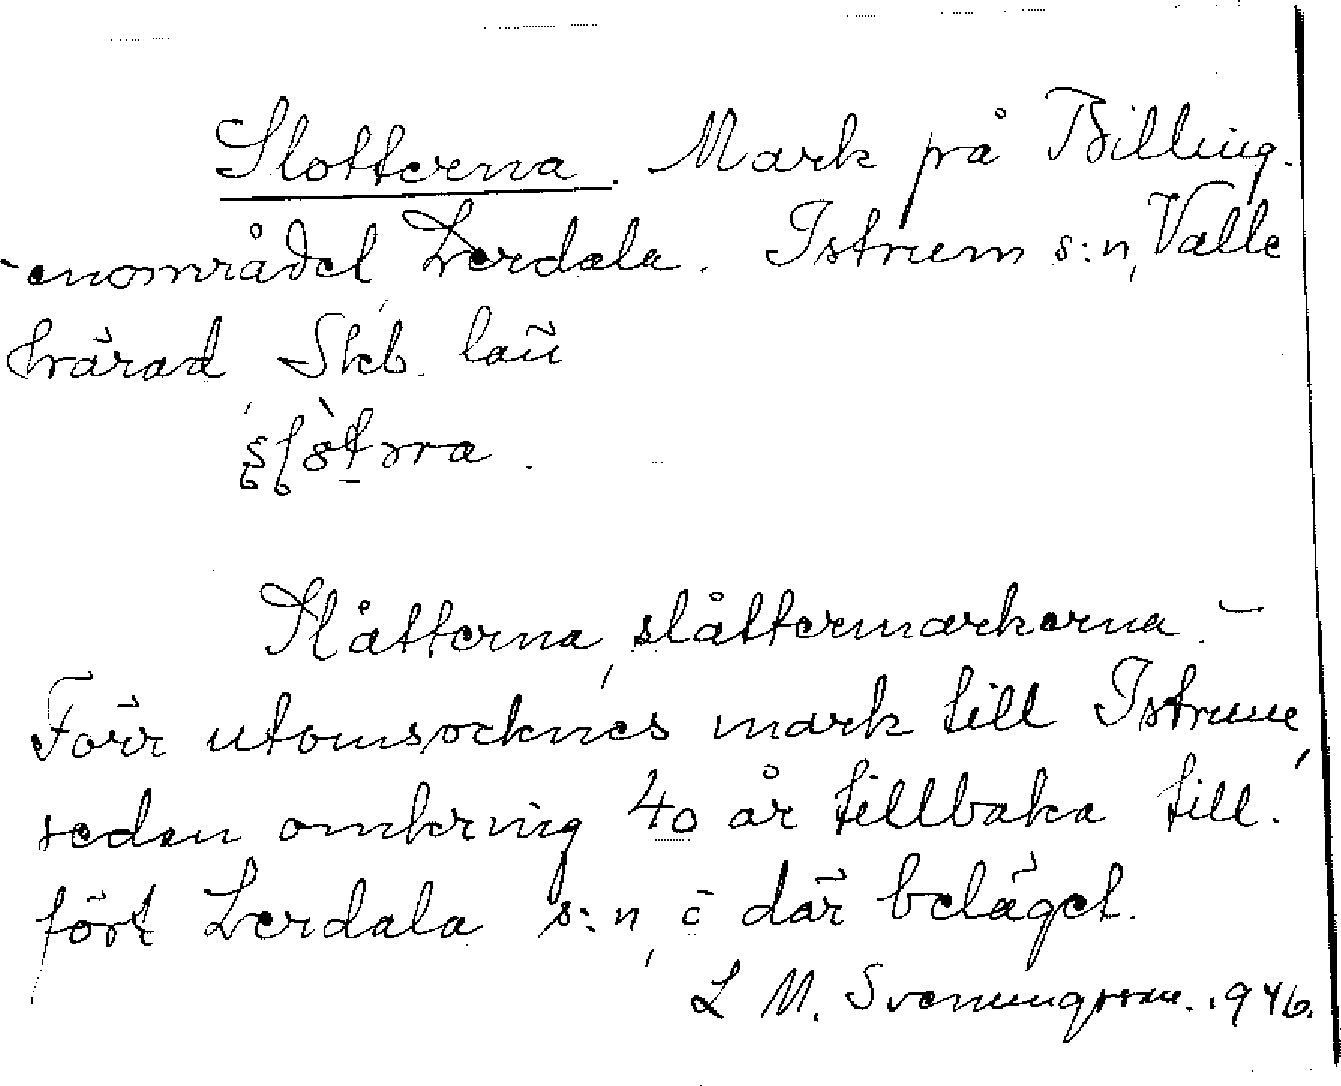 Slotterna. Mark på Billing-
-enområdet Lerdala. Istrum s:n, Valle
härad Skb. län
Slåtterna, slåttermarkerna. -
Förr utomsocknes mark till Istrum,
sedan omkring 40 år tillbaka till-
fört Lerdala s:n, o där beläget.
L M. Svenungsson. 1946.